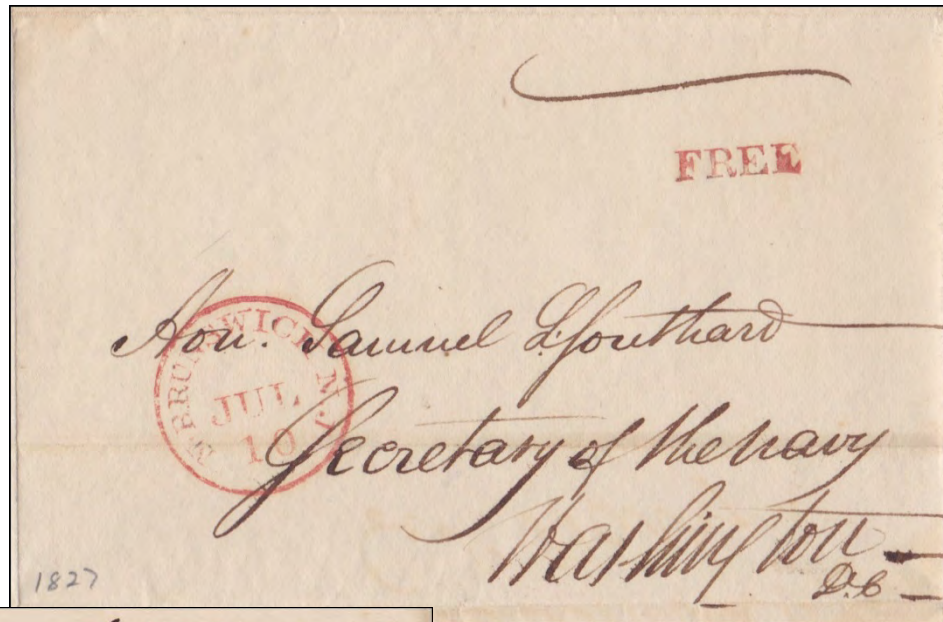 FREE
Hon. Samuel L. Southard
N. BRUNSWICK N.J.
JUL
10
Secretary of the Navy
Washington
D.C
1827